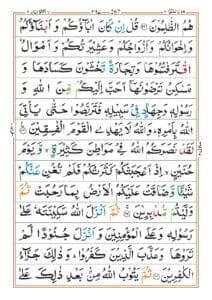 هُمُ الظّٰلِمُوْنَ ۝ قُلْ اِنْ كَانَ اٰبَآؤُكُمْ وَ اَبْنَآؤُكُمْ
وَ اِخْوَانُكُمْ وَ اَزْوَاجُكُمْ وَ عَشِيْرَتُكُمْ وَ اَمْوَالُ
اقْتَرَفْتُمُوْهَا وَ تِجَارَةٌ تَخْشَوْنَ كَسَادَهَا وَ
مَسٰكِنُ تَرْضَوْنَهَاۤ اَحَبَّ اِلَيْكُمْ مِّنَ اللّٰهِ وَ
رَسُوْلِهٖ وَ جِهَادٍ فِيْ سَبِيْلِهٖ فَتَرَبَّصُوْا حَتّٰى يَاْتِيَ
اللّٰهُ بِاَمْرِهٖ وَ اللّٰهُ لَا يَهْدِي الْقَوْمَ الْفٰسِقِيْنَ ۝
لَقَدْ نَصَرَكُمُ اللّٰهُ فِيْ مَوَاطِنَ كَثِيْرَةٍ وَّ يَوْمَ
حُنَيْنٍ اِذْ اَعْجَبَتْكُمْ كَثْرَتُكُمْ فَلَمْ تُغْنِ عَنْكُمْ
شَيْـًٔا وَّ ضَاقَتْ عَلَيْكُمُ الْاَرْضُ بِمَا رَحُبَتْ ثُمَّ
وَلَّيْتُمْ مُّدْبِرِيْنَ ۝ ثُمَّ اَنْزَلَ اللّٰهُ سَكِيْنَتَهٗ عَلٰى
رَسُوْلِهٖ وَ عَلَى الْمُؤْمِنِيْنَ وَ اَنْزَلَ جُنُوْدًا لَّمْ
تَرَوْهَا وَ عَذَّبَ الَّذِيْنَ كَفَرُوْا وَ ذٰلِكَ جَزَآءُ
الْكٰفِرِيْنَ ۝ ثُمَّ يَتُوْبُ اللّٰهُ مِنْۢ بَعْدِ ذٰلِكَ عَلٰى